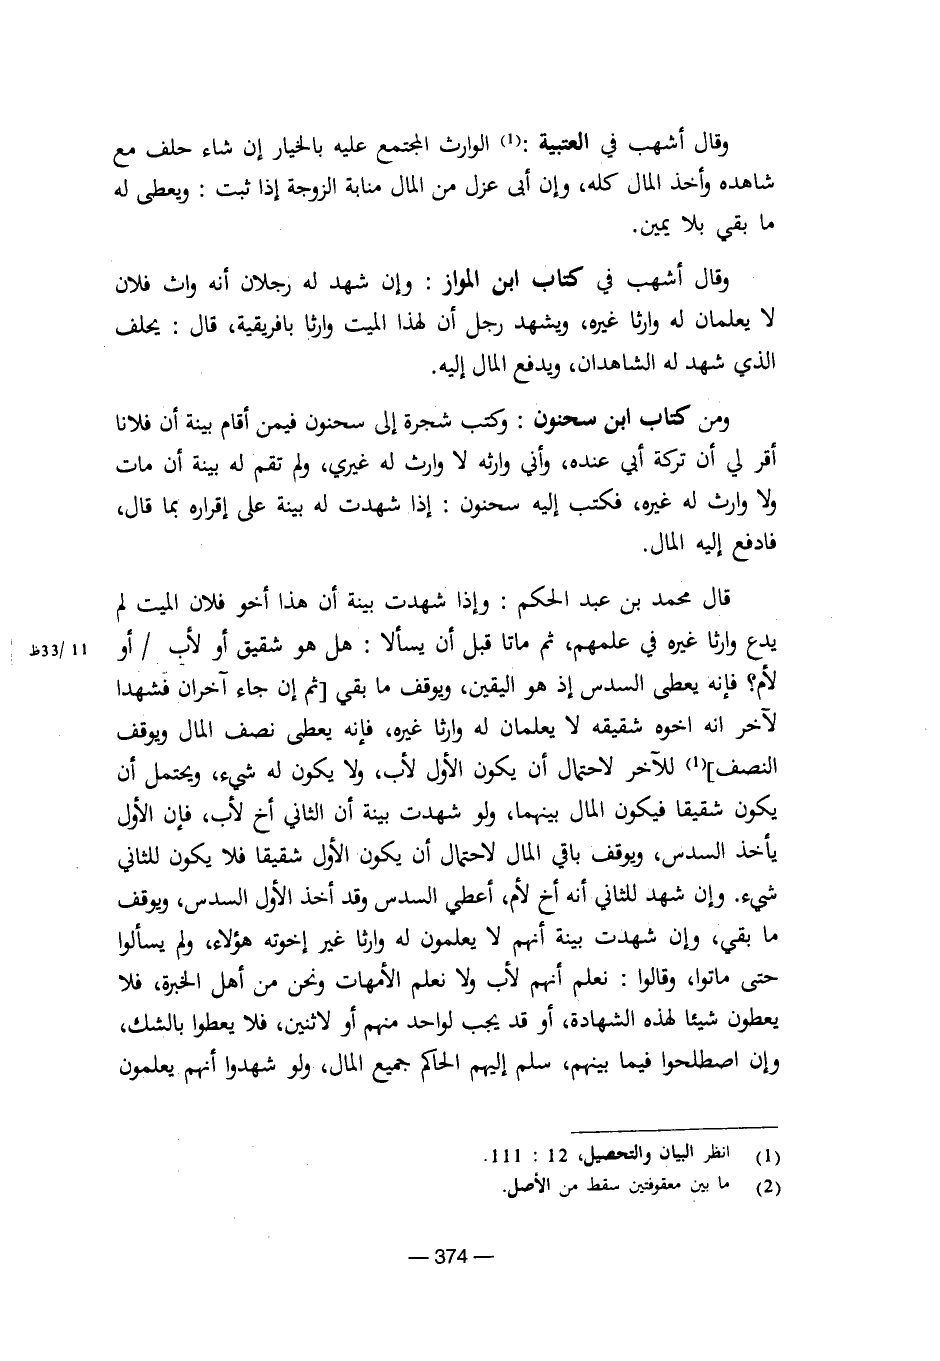 وقال أشهب في العتبية :(1) الوارث المجتمع عليه بالخيار إن شاء حلف مع
شاهده وأخذ المال كله، وإن أبى عزل من المال منابة الزوجة إذا ثبت : ويعطى له
ما بقي بلا يمين.
وقال أشهب في كتاب ابن المواز : وإن شهد له رجلان أنه واث فلان
لا يعلمان له وارثا غيره، ويشهد رجل أن لهذا الميت وارثا بافريقية، قال : يحلف
الذي شهد له الشاهدان، ويدفع المال إليه.
ومن كتاب ابن سحنون : وكتب شجرة إلى سحنون فيمن أقام بينة أن فلانا
أقر لي أن تركة أبي عنده، وأني وارثه لا وارث له غيري، ولم تقم له بينة أن مات
ولا وارث له غيره، فكتب إليه سحنون : إذا شهدت له بينة على إقراره بما قال،
فادفع إليه المال.
قال محمد بن عبد الحكم : وإذا شهدت بينة أن هذا أخو فلان الميت لم
يدع وارثا غيره في علمهم، ثم ماتا قبل أن يسألا : هل هو شقيق أو لأب / أو
11 /33ظ
لأم؟ فإنه يعطى السدس إذ هو اليقين، ويوقف ما بقي [ثم إن جاء آخران فشهدا
لآخر انه اخوه شقيقه لا يعلمان له وارثا غيره، فإنه يعطى نصف المال ويوقف
النصف](1) للآخر لاحتمال أن يكون الأول لأب، ولا يكون له شيء، ويحتمل أن
يكون شقيقا فيكون المال بينهما، ولو شهدت بينة أن الثاني أخ لأب، فإن الأول
يأخذ السدس، ويوقف باقي المال لاحتمال أن يكون الأول شقيقا فلا يكون للثاني
شيء. وإن شهد للثاني أنه أخ لأم، أعطي السدس وقد أخذ الأول السدس، ويوقف
ما بقي، وإن شهدت بينة أنهم لا يعلمون له وارثا غير إخوته هؤلاء، ولم يسألوا
حتى ماتوا، وقالوا : نعلم أنهم لأب ولا نعلم الأمهات ونحن من أهل الخبرة، فلا
يعطون شيئا لهذه الشهادة، أو قد يجب لواحد منهم أو لاثنين، فلا يعطوا بالشك،
وإن اصطلحوا فيما بينهم، سلم إليهم الحاكم جميع المال، ولو شهدوا أنهم يعلمون
(1) انظر البيان والتحصيل، 12 : 111.
(2) ما بين معقوفتين سقط من الأصل.
— 374 —